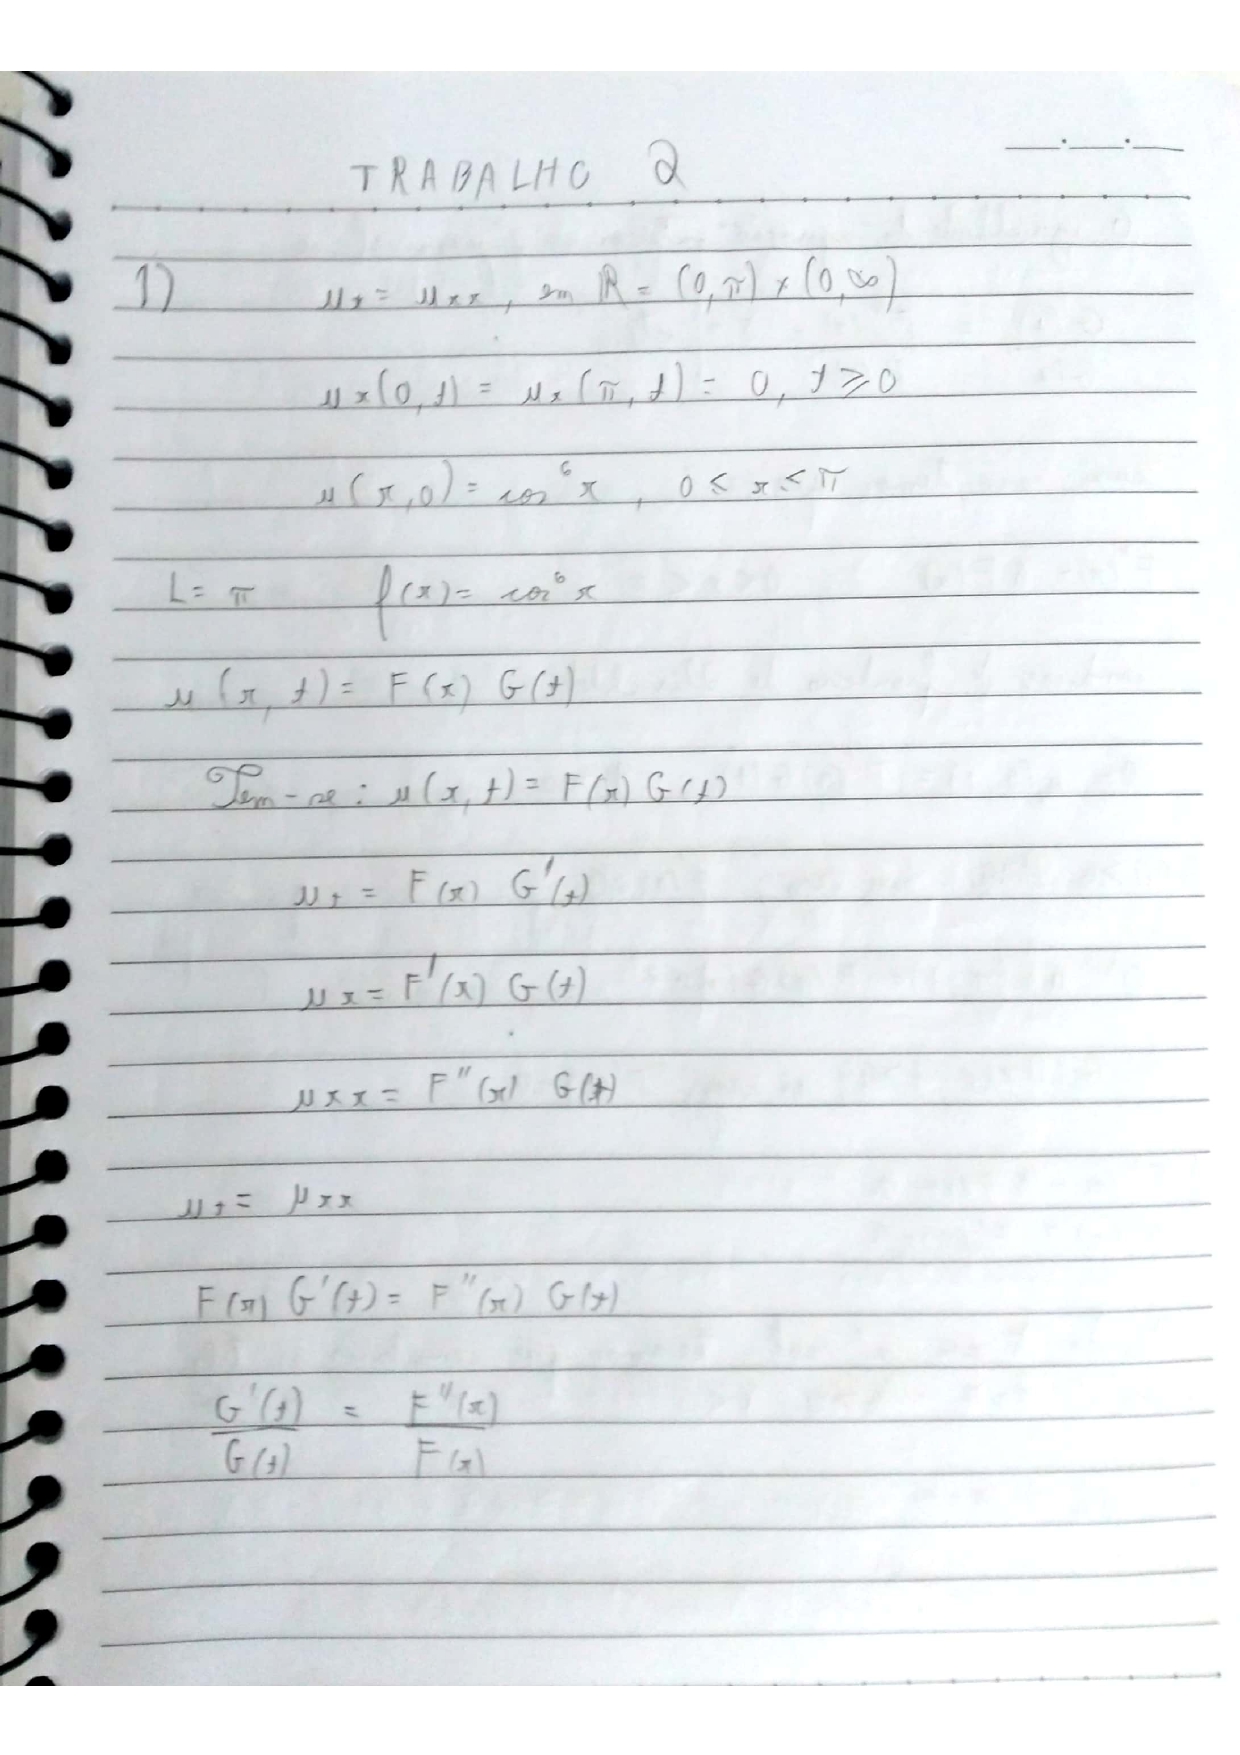 TRABALHO 2
1) u_t = u_xx, em R = (0, π) x (0, ∞)
u_x(0, t) = u_x(π, t) = 0, t ≥ 0
u(x, 0) = cos⁶x, 0 ≤ x ≤ π
L = π f(x) = cos⁶x
u(x, t) = F(x) G(t)
Tem-se: u(x, t) = F(x) G(t)
u_t = F(x) G'(t)
u_x = F'(x) G(t)
u_xx = F''(x) G(t)
u_t = u_xx
F(x) G'(t) = F''(x) G(t)
G'(t)/G(t) = F''(x)/F(x)